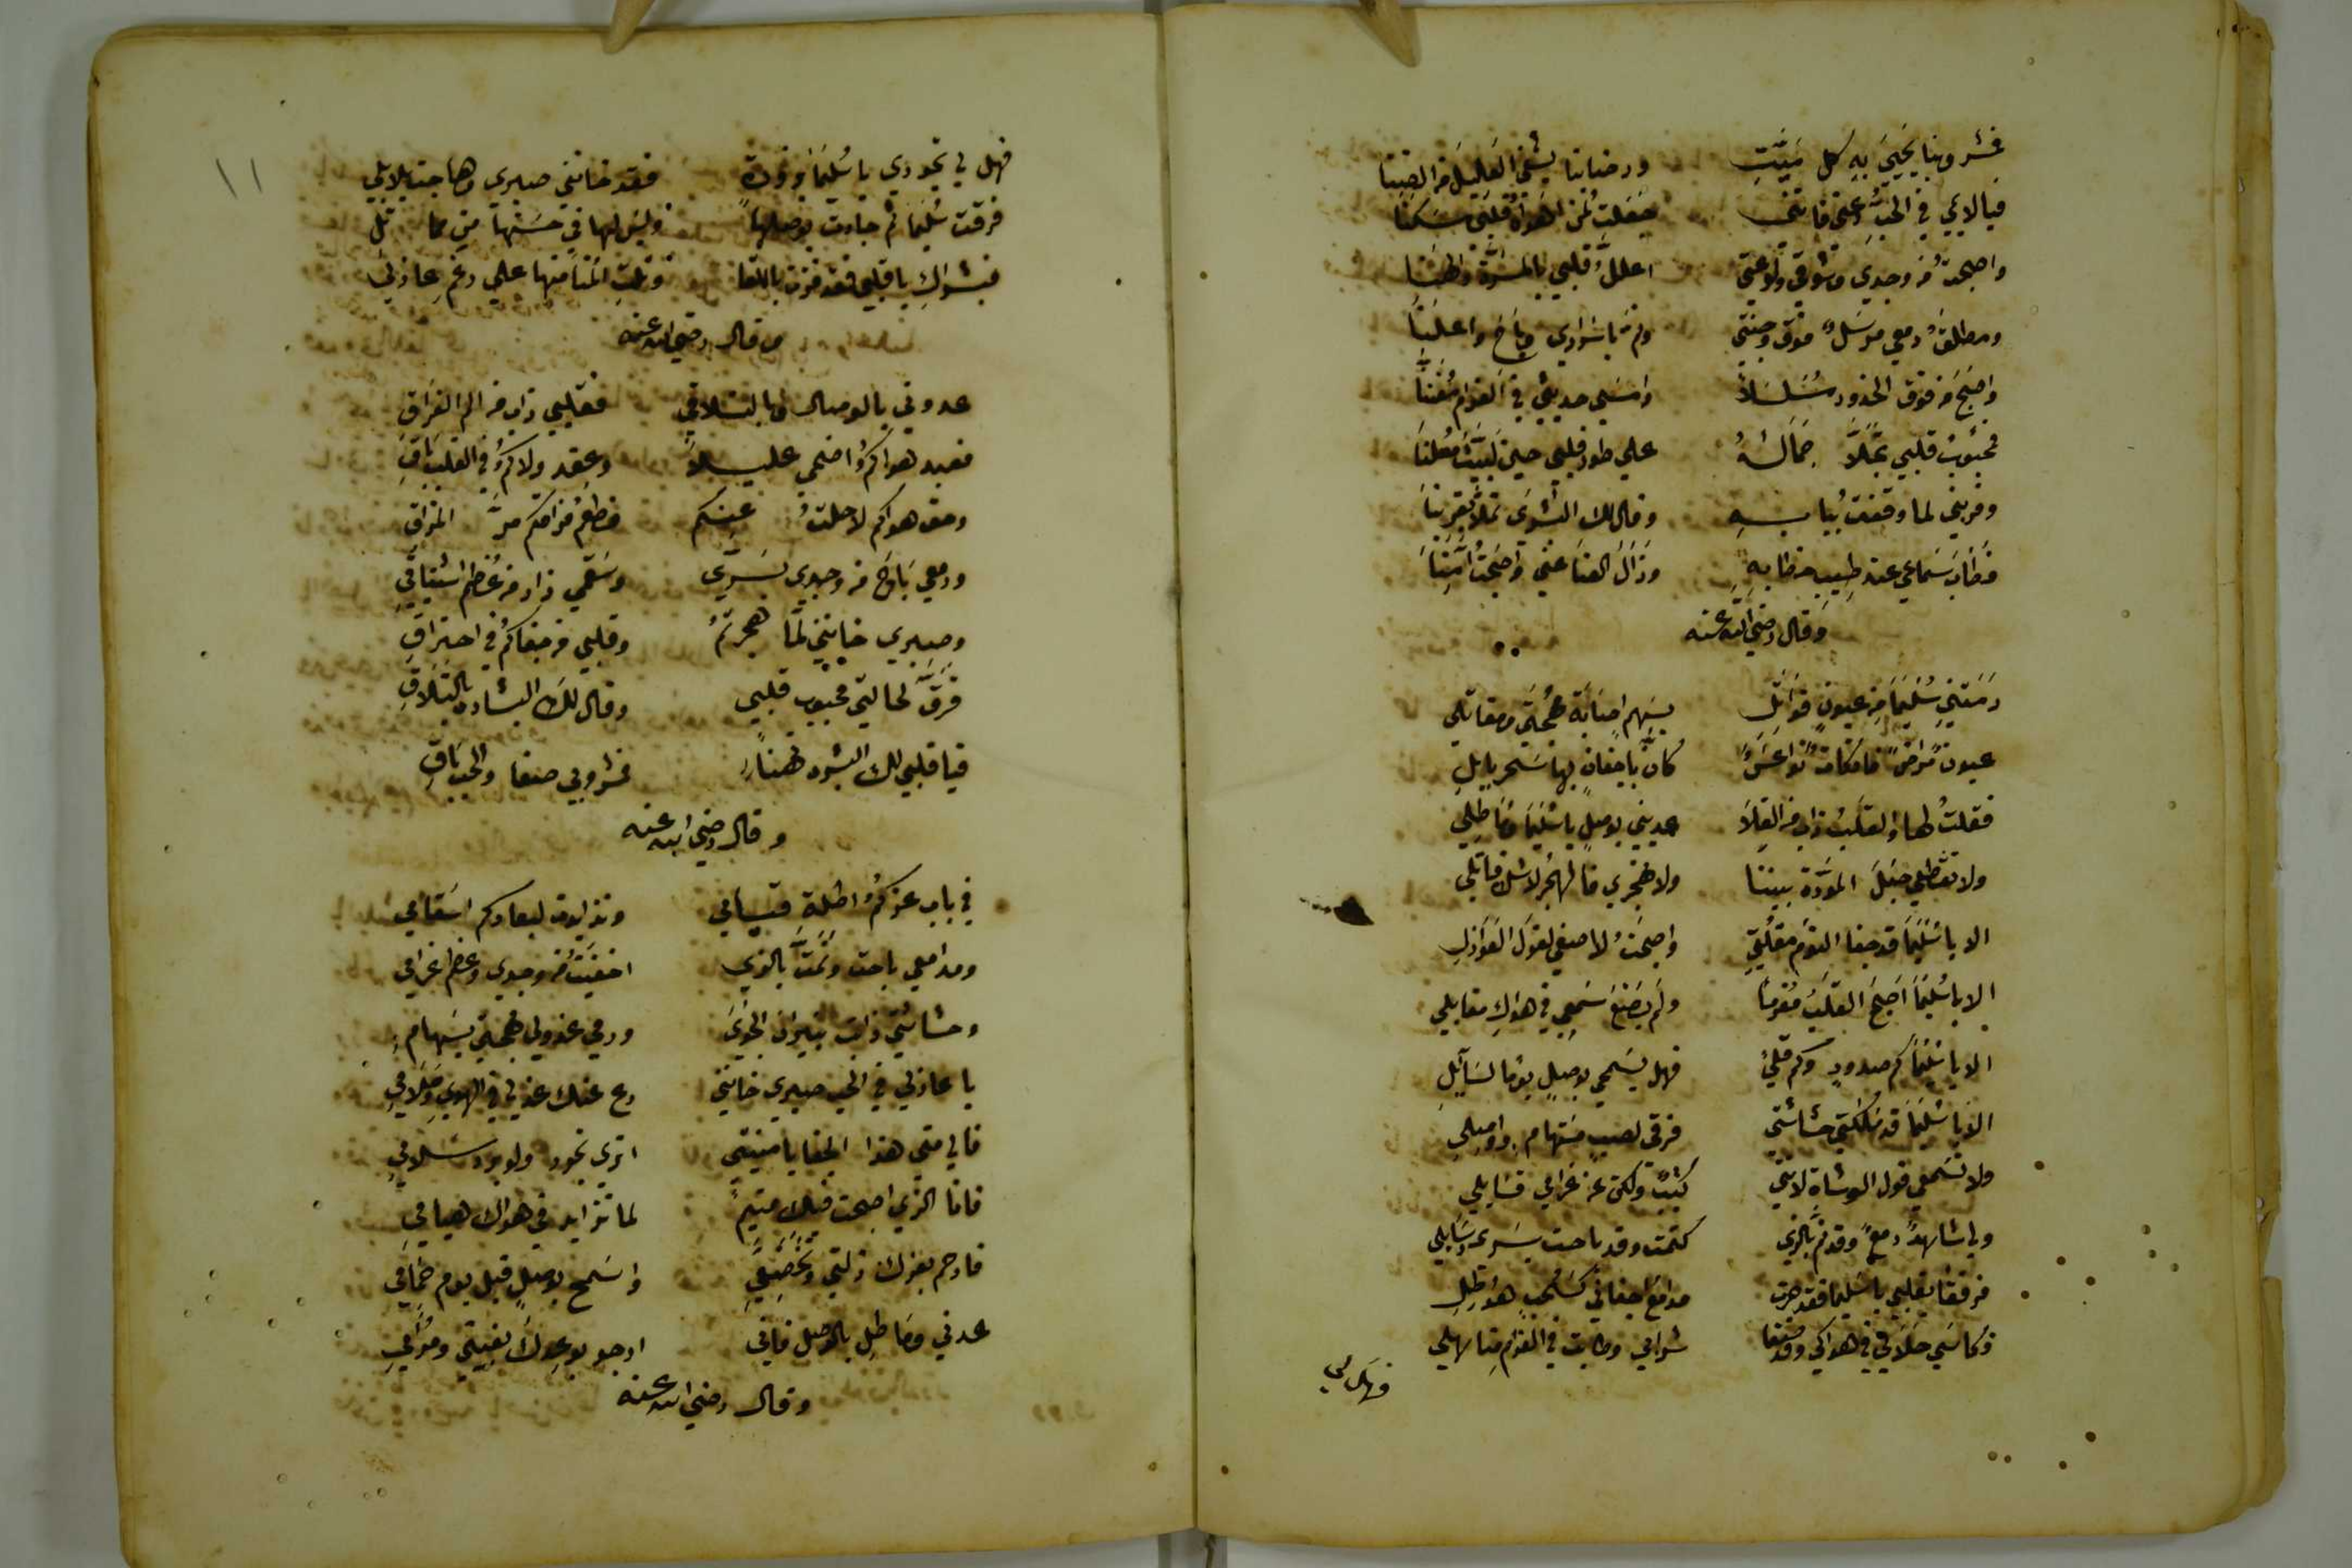 فمشروبنا يحيي به كل ميت ورضابنا يشفي العليل من الضنا
فيا لائمي في الحب دعني فانني جعلت لمن اهواه قلبي مسكنا
واصبحت من وجدي وشوقي ولوعتي اعلل قلبي بالمسرة والهنا
ومطلق دمعي مرسل فوق وجنتي ونم باسراري وباح واعلنا
واصبح من فوق الخدود مسلسلا وامسى حديثي في الغرام
محبوب قلبي تجلا جماله على طور قلبي حين لبيت معلنا
وقربني لما وقفت ببابه وقال لك البشرى تملا بقربنا
وطاب سماعي عند طيب خطابه وزال العنا عني واصبحت
وقال رضي الله عنه
رمتني سليما من عيون قواتل بسهم اصابه مهجتي ومقاتلي
عيون مراض فاتكات نواعس كان باجفان بها سحر بابل
فقلت لها والقلب ذاب من القلا عديني بوصل يا سليما وماطلي
ولا تقطعي حبل المودة بيننا ولا تهجري فالهجر لا شك قاتلي
الا يا سليما قد جفا النوم مقلتي واصبحت لا اصغي لقول العواذل
الا يا سليما اصبح القلب مغرما ولم يصغ سمعي في هواك مقابلي
الا يا سليما كم صدود وكم قلي فهل يسمحي بوصل يوما لسايل
الا يا سليما قد ملكتي حشاشتي فرقي لصب مستهام وواصلي
ولا تسمعي قول الوشاة لانني كئيب ولكن عن غرامي فسايلي
ولي شاهد دمع وقد نم بالذي كتمت وقد باحت بسري رسايلي
فرفقا بقلبي يا سليما فقد جرت مدامع اجفاني كسحب هواطل
وكاسي حلا في في هواكي وقد صفا شرابي وطابت في الغرام مناهلي
فهل لي
١١
فهل لي تجودي يا سليما بزورة فقد خانني صبري وهاجت بلابلي
فرقت سليما ثم جادت بوصلها وليس لها في حسنها من مماثل
فبشراك يا قلبي فقد فزت باللقا ونلت المنا منها على رغم عاذلي
وقال رضي الله عنه
عدوني بالوصال وبالتلاقي فقلبي ذاب من الم الفراق
فعبد هواكم اضحى عليلا وعقد ولاكم في القلب باق
وحق هواكم لا حلت عنكم فطعم فراقكم مر المذاق
ودمعي باح من وجدي بسري وسقمي زاد من عظم اشتياقي
وصبري خانني لما هجرتم وقلبي من جفاكم في احتراق
فرق لحالتي محبوب قلبي وقال لك البشاره بالتلاق
فيا قلبي لك البشره تهنا فمشروبي صفا والحب باق
وقال رضي الله عنه
في باب عزكم اطلة قيامي وتزايدت لبعادكم اسقامي
ومدامعي باحت ونمت بالذي اخفيت من وجدي وعظم غرامي
وحشاشتي ذابت بنيران الجوى ورمي عذولي مهجتي بسهام
يا عاذلي في الحب صبري خانني دع عنك عذلي في الهوى وملامي
فالي متى هذا الجفا يا منيتي اترى تجود ولو برد سلامي
فانا الذي اصبحت فيك متيم لما تزايد في هواك هيامي
فارحم بعزك ذلتي واسمح بوصل قبل يوم حمامي
عدني وماطل بالوصل فانني ارجو بوعدك بغيتي ومرامي
وقال رضي الله عنه